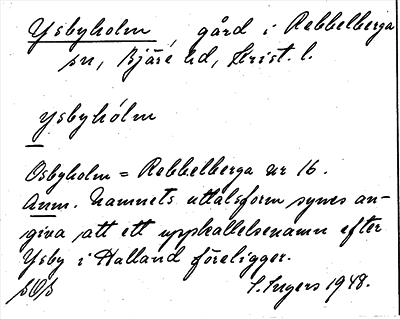 Ysbyholm, gård i Rebbelberga
sn, Bjäre hd, Krist. l.
ysbyhólm
Osbyholm = Rebbelberga nr 16.
Anm. Namnets uttalsform synes an-
giva att ett uppkallelsenamn efter
Ysby i Halland föreligger.
I. Ingers 1948.